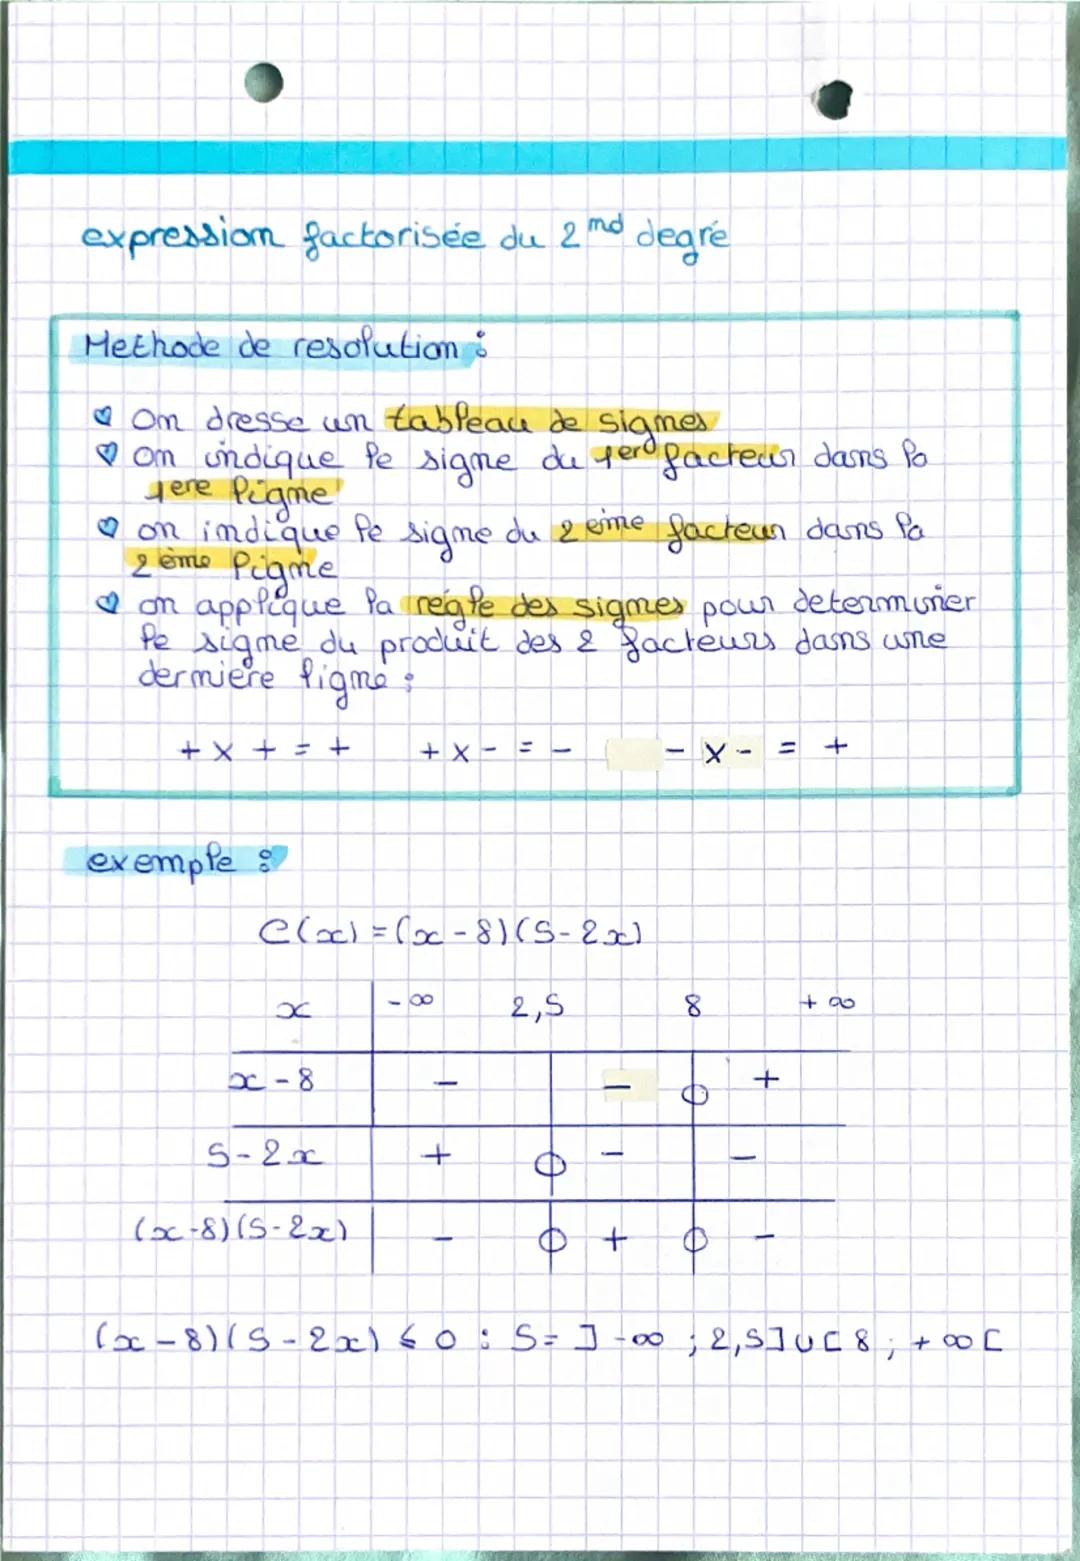 expression factorisée du 2nd degré
Methode de resolution :
On dresse un tableau de signes
on indique le signe du 1er facteur dans la
1ere ligne
on indique le signe du 2eme facteur dans la
2ème ligne
on applique la règle des signes pour determiner
le signe du produit des 2 facteurs dans une
dernière ligne :
+ x + = + + x - = - - x - = +
exemple :
C(x) = (x - 8)(5 - 2x)
x -∞ 2,5 8 +∞
x - 8 - - 0 +
5 - 2x + 0 - -
(x - 8)(5 - 2x) - 0 + 0 -
(x - 8)(5 - 2x) ≤ 0 : S = ]-∞ ; 2,5] ∪ [8 ; +∞[